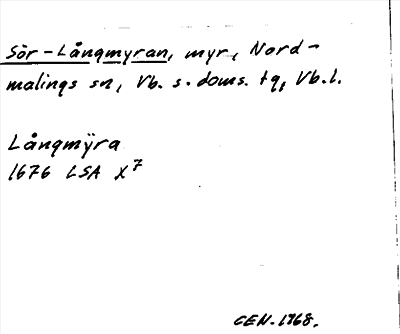 Sör-Långmyran, myr, Nord-
malings sn, Vb. s. doms. tg, Vb.l.
Långmÿra
1676 LSA X7
CEN. 1968.